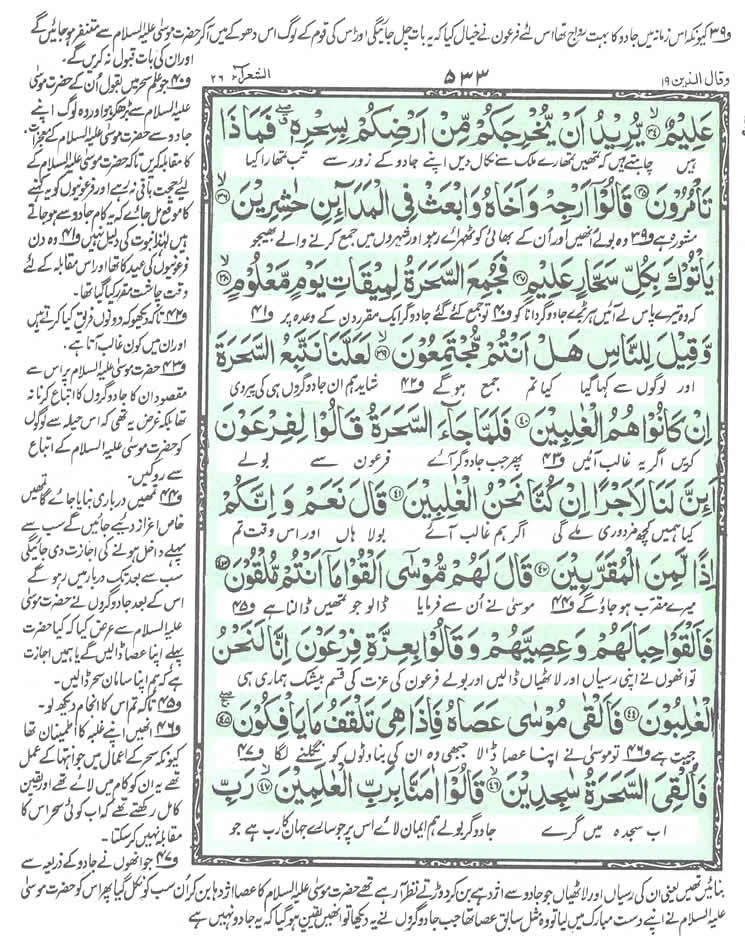 و۳۹ کیونکہ اس زمانہ میں جادو کا بہت رواج تھا اس لئے فرعون نے خیال کیا کہ یہ بات چل جائیگی اور اس کی قوم کے لوگ اس دھوکے میں آ کر حضرت موسیٰ علیہ السلام سے متنفر ہو جائیں گے
اور ان کی بات قبول نہ کریں گے۔
وقال الذین ۱۹
۵۳۳
الشعرآء ۲۶
عَلِیْمٌ ۙ﴿۳۴﴾ یُّرِیْدُ اَنْ یُّخْرِجَكُمْ مِّنْ اَرْضِكُمْ بِسِحْرِهٖ ۖۗ فَمَا ذَا
ہیں چاہتے ہیں کہ تمھیں تمھارے ملک سے نکال دیں اپنے جادو کے زور سے تب تمھارا کیا
تَاْمُرُوْنَ ﴿۳۵﴾ قَالُوْۤا اَرْجِهْ وَ اَخَاهُ وَ ابْعَثْ فِی الْمَدَآىِٕنِ حٰشِرِیْنَ ۙ﴿۳۶﴾
مشورہ ہے و۳۹ وہ بولے انھیں اور ان کے بھائی کو ٹھہرائے رہو اور شہروں میں جمع کرنے والے بھیجو
یَاْتُوْكَ بِكُلِّ سَحَّارٍ عَلِیْمٍ ﴿۳۷﴾ فَجُمِعَ السَّحَرَةُ لِمِیْقَاتِ یَوْمٍ مَّعْلُوْمٍ ۙ﴿۳۸﴾
کہ وہ تیرے پاس لے آئیں ہر بڑے جادوگر دانا کو و۴۰ تو جمع کئے گئے جادوگر ایک مقرر دن کے وعدہ پر و۴۱
وَّ قِیْلَ لِلنَّاسِ هَلْ اَنْتُمْ مُّجْتَمِعُوْنَ ۙ﴿۳۹﴾ لَعَلَّنَا نَتَّبِعُ السَّحَرَةَ
اور لوگوں سے کہا گیا کیا تم جمع ہو گے و۴۲ شاید ہم ان جادوگروں ہی کی پیروی
اِنْ كَانُوْا هُمُ الْغٰلِبِیْنَ ﴿۴۰﴾ فَلَمَّا جَآءَ السَّحَرَةُ قَالُوْا لِفِرْعَوْنَ
کریں اگر یہ غالب آئیں و۴۳ پھر جب جادوگر آئے فرعون سے بولے
اَىِٕنَّ لَنَا لَاَجْرًا اِنْ كُنَّا نَحْنُ الْغٰلِبِیْنَ ﴿۴۱﴾ قَالَ نَعَمْ وَ اِنَّكُمْ
کیا ہمیں کچھ مزدوری ملے گی اگر ہم غالب آئے بولا ہاں اور اس وقت تم
اِذًا لَّمِنَ الْمُقَرَّبِیْنَ ﴿۴۲﴾ قَالَ لَهُمْ مُّوْسٰۤى اَلْقُوْا مَاۤ اَنْتُمْ مُّلْقُوْنَ ﴿۴۳﴾
میرے مقرب ہو جاؤ گے و۴۴ موسیٰ نے ان سے فرمایا ڈالو جو تمھیں ڈالنا ہے و۴۵
فَاَلْقَوْا حِبَالَهُمْ وَ عِصِیَّهُمْ وَ قَالُوْا بِعِزَّةِ فِرْعَوْنَ اِنَّا لَنَحْنُ
تو انھوں نے اپنی رسیاں اور لاٹھیاں ڈالیں اور بولے فرعون کی عزت کی قسم بیشک ہماری ہی
الْغٰلِبُوْنَ ﴿۴۴﴾ فَاَلْقٰى مُوْسٰى عَصَاهُ فَاِذَا هِیَ تَلْقَفُ مَا یَاْفِكُوْنَ ﴿۴۵﴾ۚۖ
جیت ہے و۴۶ تو موسیٰ نے اپنا عصا ڈالا جبھی وہ ان کی بناوٹوں کو نگلنے لگا و۴۷
فَاُلْقِیَ السَّحَرَةُ سٰجِدِیْنَ ۙ﴿۴۶﴾ قَالُوْۤا اٰمَنَّا بِرَبِّ الْعٰلَمِیْنَ ۙ﴿۴۷﴾ رَبِّ
اب سجدہ میں گرے جادوگر بولے ہم ایمان لائے اس پر جو سارے جہان کا رب ہے جو
و۴۰ جو علم سحر میں بقول ان کے حضرت موسیٰ
علیہ السلام سے بڑھ کر ہو اور وہ لوگ اپنے
جادو سے حضرت موسیٰ علیہ السلام کے معجزات
کا مقابلہ کریں تاکہ حضرت موسیٰ علیہ السلام کے
لئے حجت باقی نہ رہے اور فرعونیوں کو یہ کہنے
کا موقع مل جائے کہ یہ کام جادو سے ہو جاتے
ہیں لہٰذا نبوت کی دلیل نہیں و۴۱ وہ دن
فرعونیوں کی عید کا تھا اور اس مقابلہ کے لئے
وقت چاشت مقرر کیا گیا تھا۔
و۴۲ تاکہ دیکھو کہ دونوں فریق کیا کرتے ہیں
اور ان میں کون غالب آتا ہے۔
و۴۳ حضرت موسیٰ علیہ السلام پر اس سے
مقصود ان کا جادوگروں کا اتباع کرنا نہ
تھا بلکہ غرض یہ تھی کہ اس حیلہ سے لوگوں
کو حضرت موسیٰ علیہ السلام کے اتباع
سے روکیں۔
و۴۴ تمھیں درباری بنایا جائے گا تمھیں
خاص اعزاز دیئے جائیں گے سب سے
پہلے داخل ہونے کی اجازت دی جائیگی
سب سے بعد تک دربار میں رہو گے
اس کے بعد جادوگروں نے حضرت موسیٰ
علیہ السلام سے عرض کیا کہ کیا حضرت
پہلے اپنا عصا ڈالیں گے یا ہمیں اجازت
ہے کہ ہم اپنا سامان سحر ڈالیں۔
و۴۵ تاکہ تم اس کا انجام دیکھ لو۔
و۴۶ انھیں اپنے غلبہ کا اطمینان تھا
کیونکہ سحر کے اعمال میں جو انتہا کے عمل
تھے یہ ان کو کام میں لائے تھے اور یقین
کامل رکھتے تھے کہ اب کوئی سحر اس کا
مقابلہ نہیں کر سکتا۔
و۴۷ جو انھوں نے جادو کے ذریعہ سے
بنائیں تھیں یعنی ان کی رسیاں اور لاٹھیاں جو جادو سے اژدہے بن کر دوڑتے نظر آ رہے تھے حضرت موسیٰ علیہ السلام کا عصا اژدہا بن کر ان سب کو نگل گیا پھر اس کو حضرت موسیٰ
علیہ السلام نے اپنے دست مبارک میں لیا تو وہ مثل سابق عصا تھا جب جادوگروں نے یہ دیکھا تو انھیں یقین ہو گیا کہ یہ جادو نہیں ہے